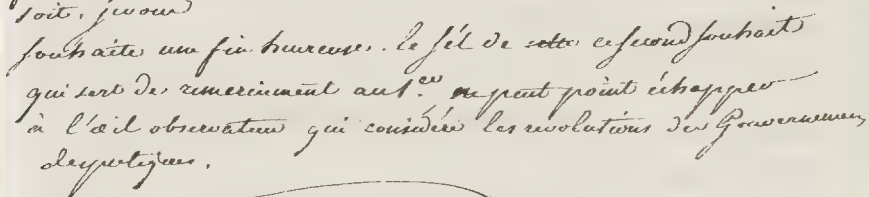 soit, je vous
souhaite une fin heureuse. le sél de cette ce second souhait
qui sert de remerciement au 1.er ne peut point échapper
à l'œil observateur qui considére les revolutions des Gouvernemens
despotiques.